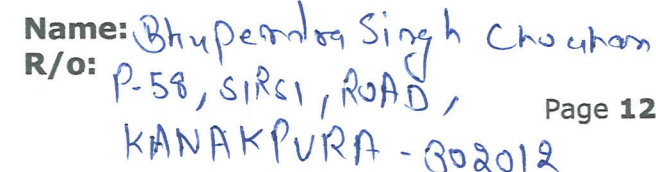 Name: Bhupendra Singh Chouhan
R/o: P-58, SIRSI, ROAD,
Page 12
KANAKPURA - 302012